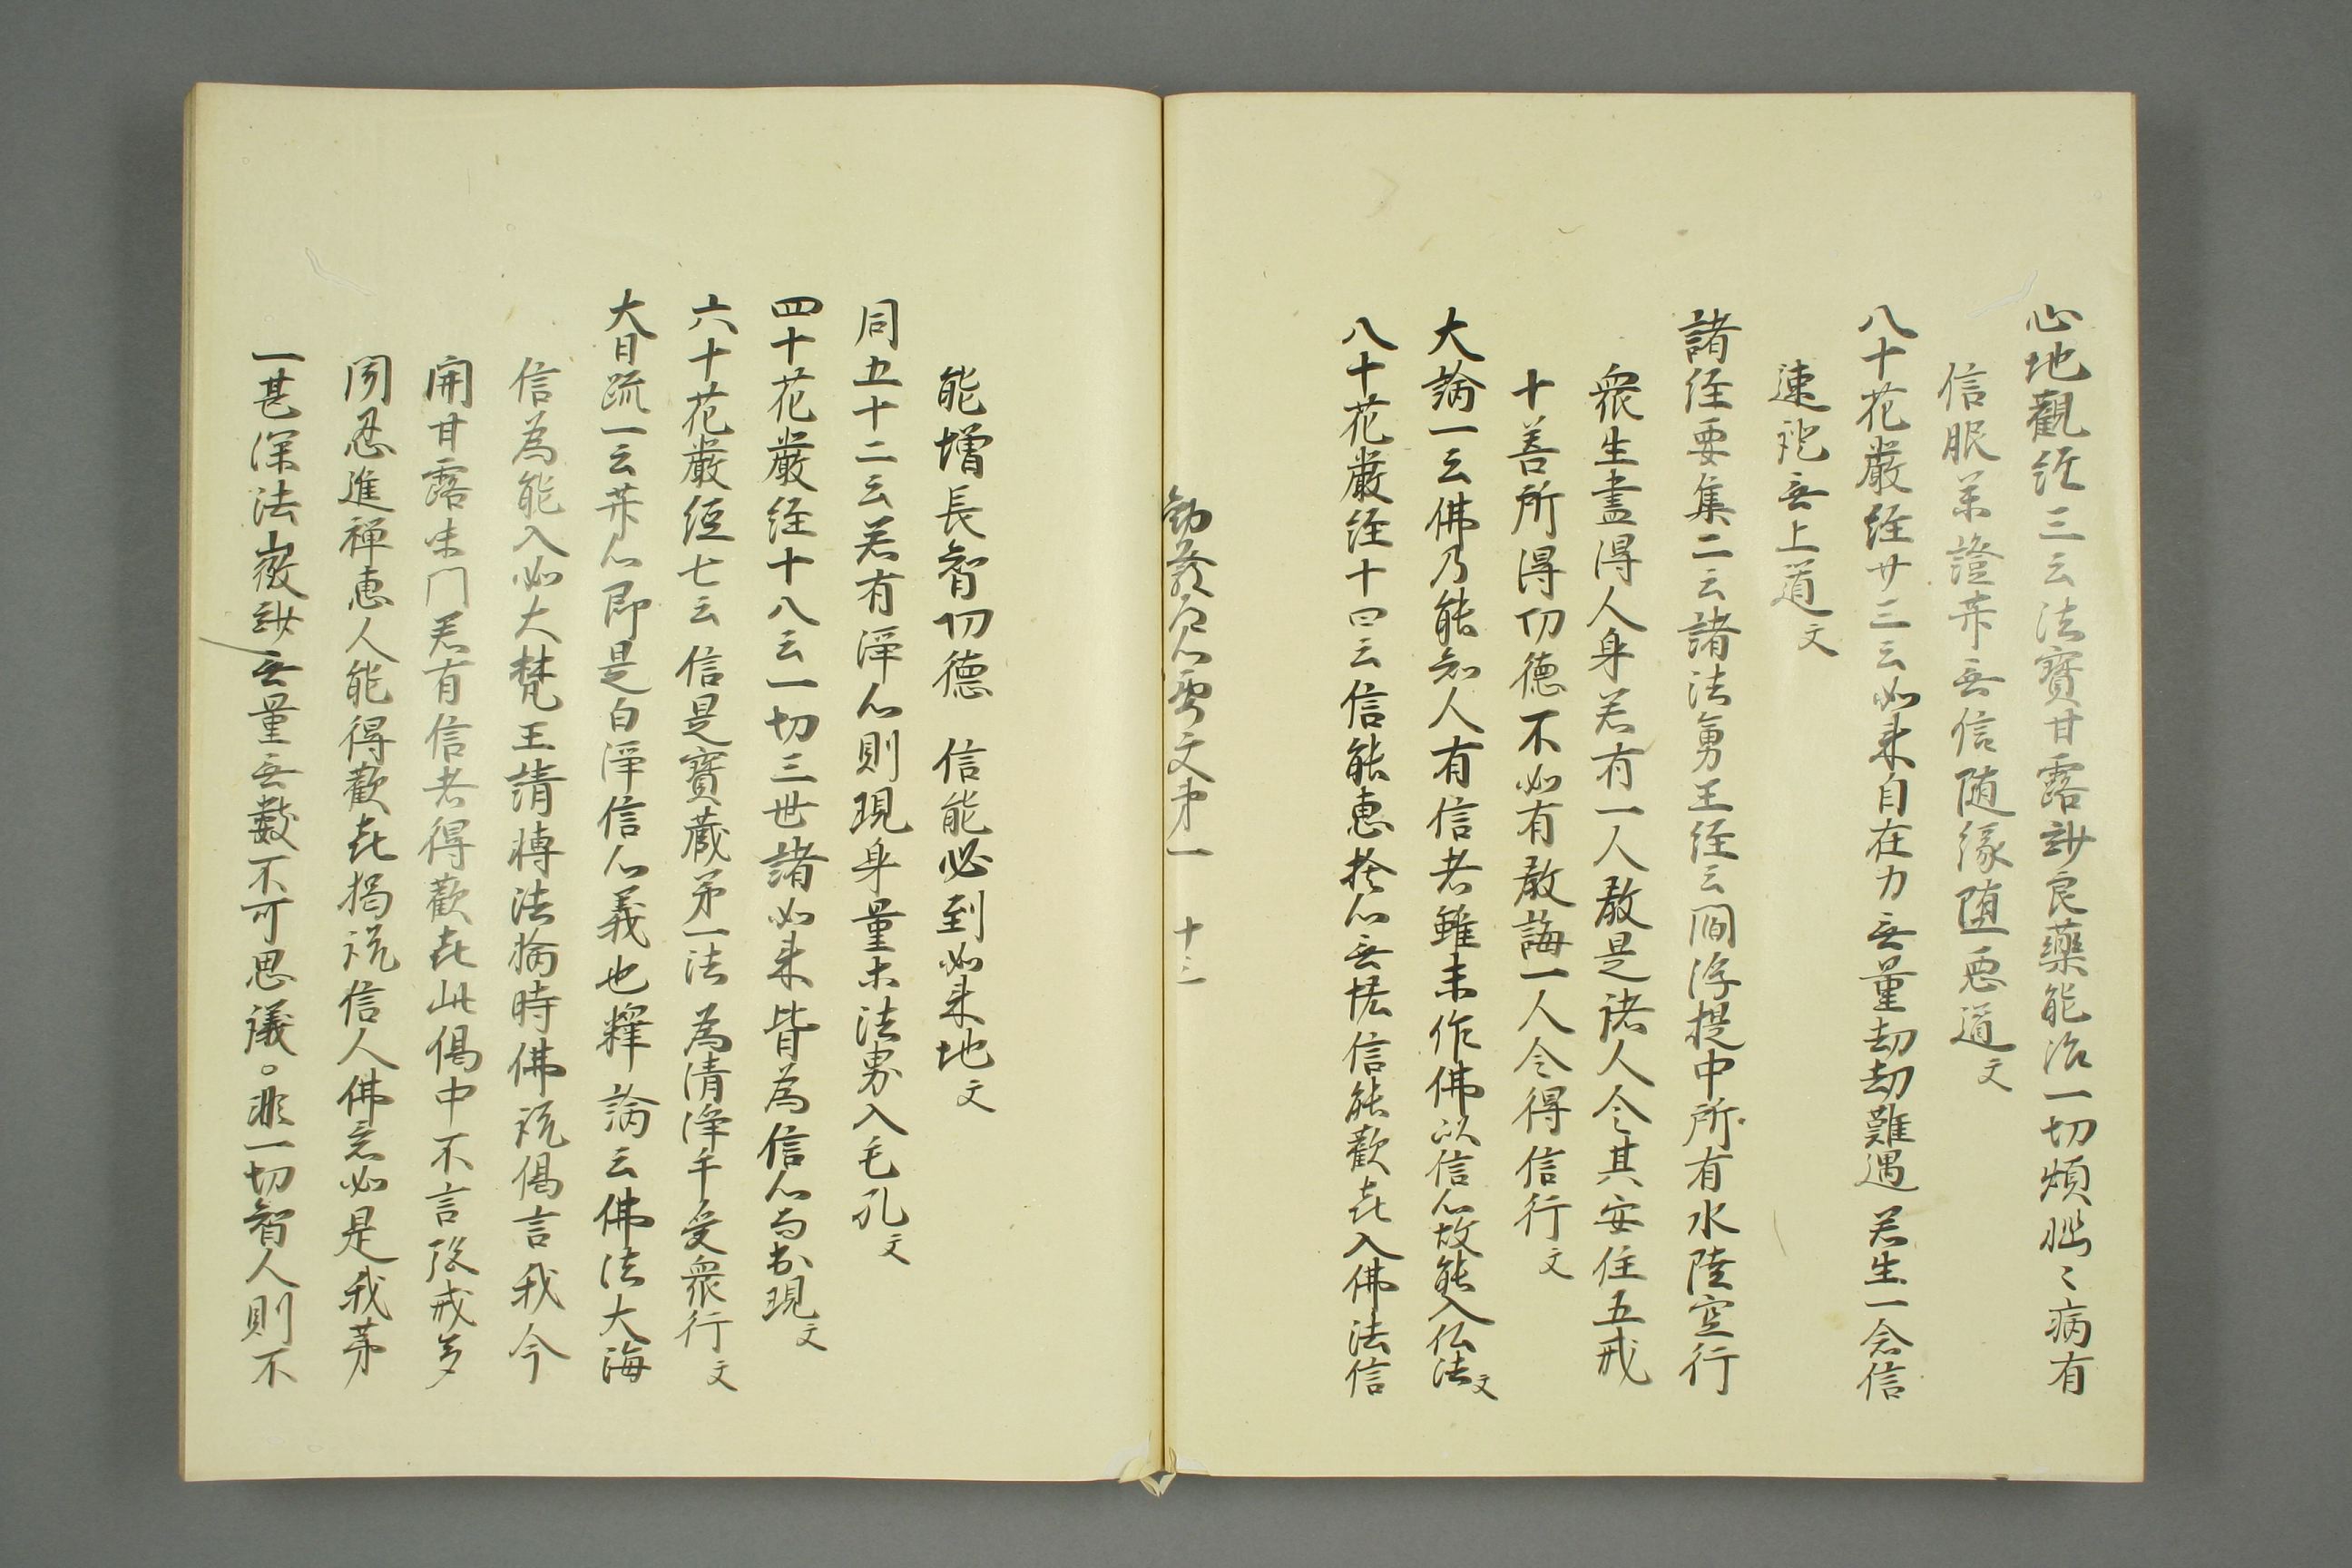 心地觀経三云法寶甘露妙良藥能治一切煩惱〻病有
信服藥證菩无信随緣堕惡道文
八十花嚴経廿三云如来自在力无量劫劫難遇若生一念信
速證无上道文
諸経要集二云諸法勇王経云閻浮提中所有水陸空行
衆生盡得人身若有一人教是諸人令其安住五戒
十善所得功德不如有教誨一人令得信行文
大論一云佛乃能知人有信者雖未作佛以信心故能入仏法文
八十花嚴経十四云信能惠捨心无悋信能歡㐂入佛法信
勸發信心要文第一 十三
能增長智功德 信能必到如来地文
同五十二云若有淨心則現身量ホ法界入毛孔文
四十花嚴経十八云一切三世諸如来皆為信心而出現文
六十花嚴経七云信是寶蔵第一法為清淨手受衆行文
大日疏一云菩心即是白淨信心義也釋論云佛法大海
信為能入如大梵王請轉法輪時佛説偈言我今
開甘露味門若有信者得歡㐂此偈中不言施戒多
聞忍進禅惠人能得歡㐂獨説信人佛意如是我第
一甚深法微妙无量无數不可思議。非一切智人則不